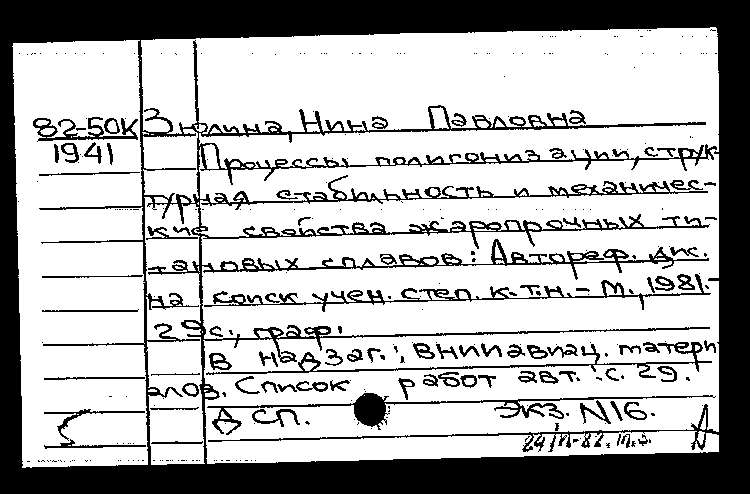 82-50К Зюлина, Нина Павловна
1941 Процессы полигонизации, струк-
турная стабильность и механичес-
кие свойства жаропрочных ти-
тановых сплавов: Автореф. дис.
на соиск учен. степ. к.т.н. - М., 1981.-
29с., граф.
В надзаг.: ВНИИавиац. матери
алов. Список работ авт.: с. 29.
ДСП. ЭКЗ. N16.
А